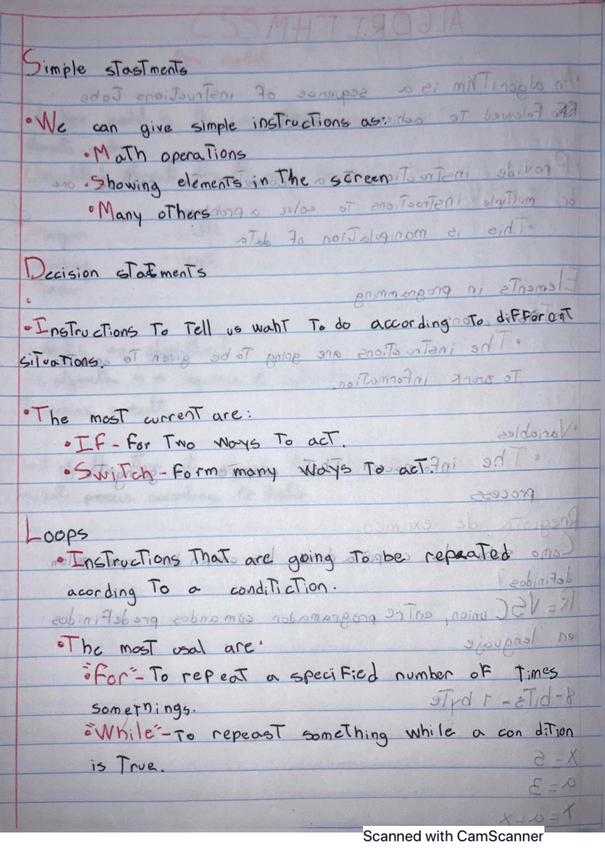 Simple stastments
•We can give simple instructions as:
•Math operations
•Showing elements in the screen
•Many others
Decision statments
•Instructions To Tell us waht To do according To different
situations.
•The most current are:
•If - for Two ways To act.
•Switch - form many ways To act.
Loops
•Instructions That are going To be repeated
acording To a conditiction.
•The most usal are:
•"for" - To repeat a specified number of times
somethings.
•"While" - To repeast something while a condition
is True.
Scanned with CamScanner